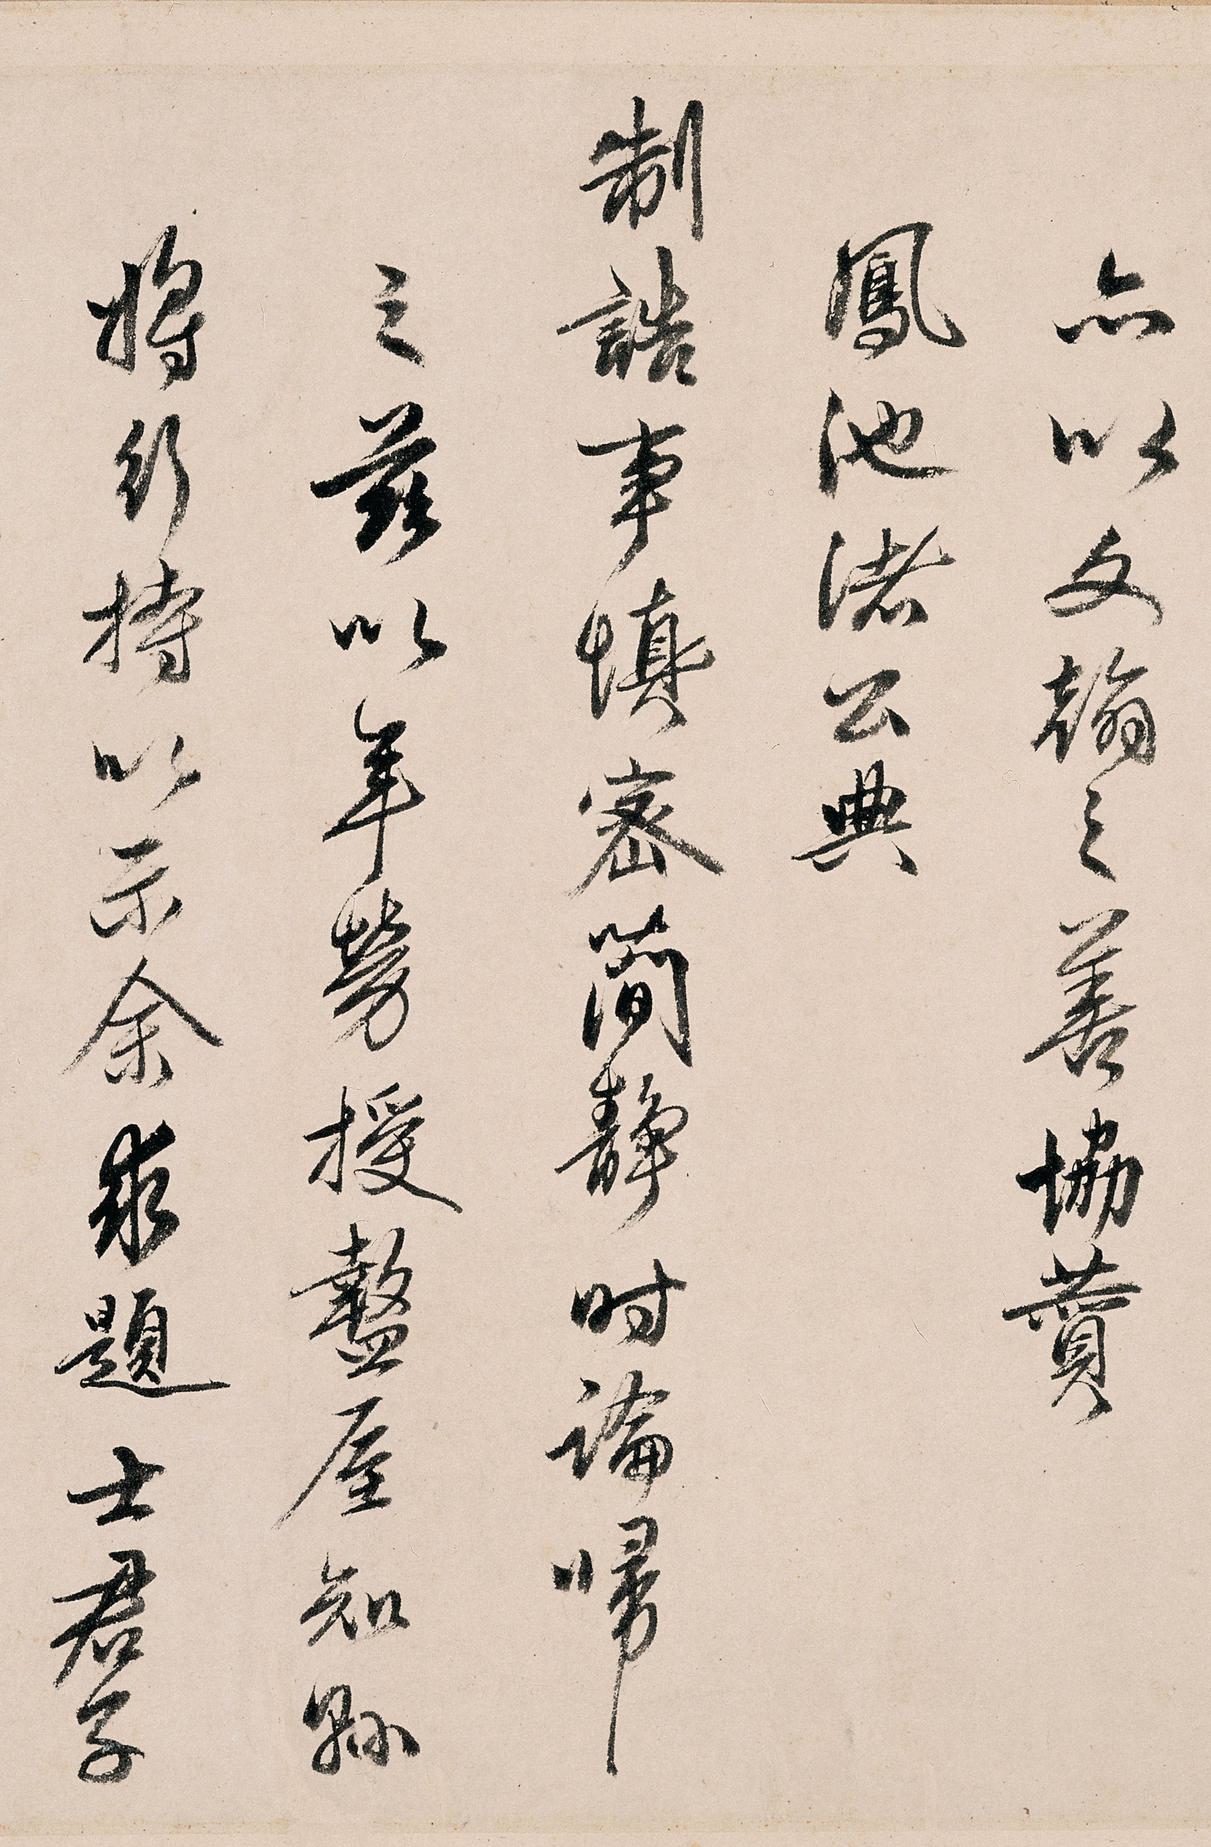 亦以文翰之善協贊
鳳池諸公典
制誥事慎密簡靜時論歸
之茲以年勞授盩厔知縣
將行持以示余求題士君子